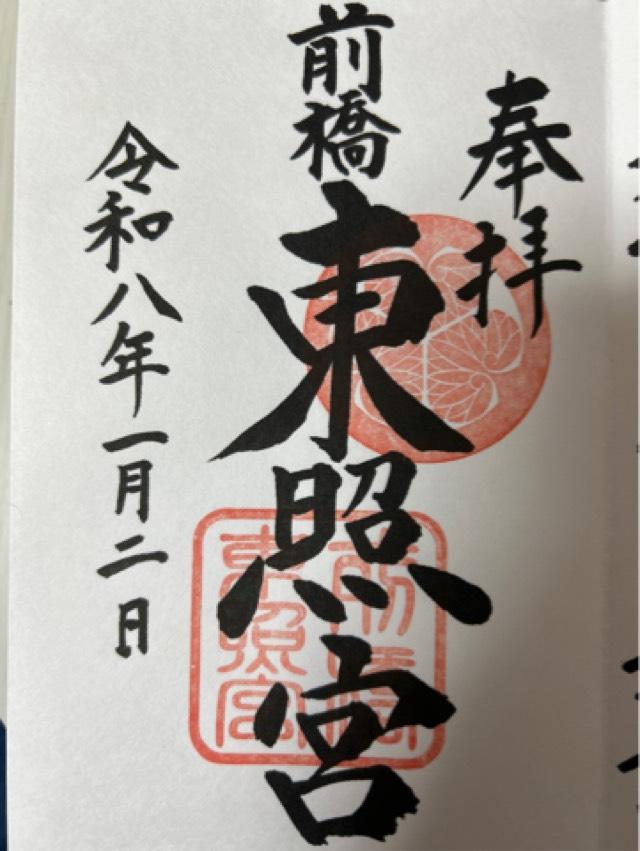 奉拝
前橋
東照宮
令和八年一月二日
前橋
東照宮